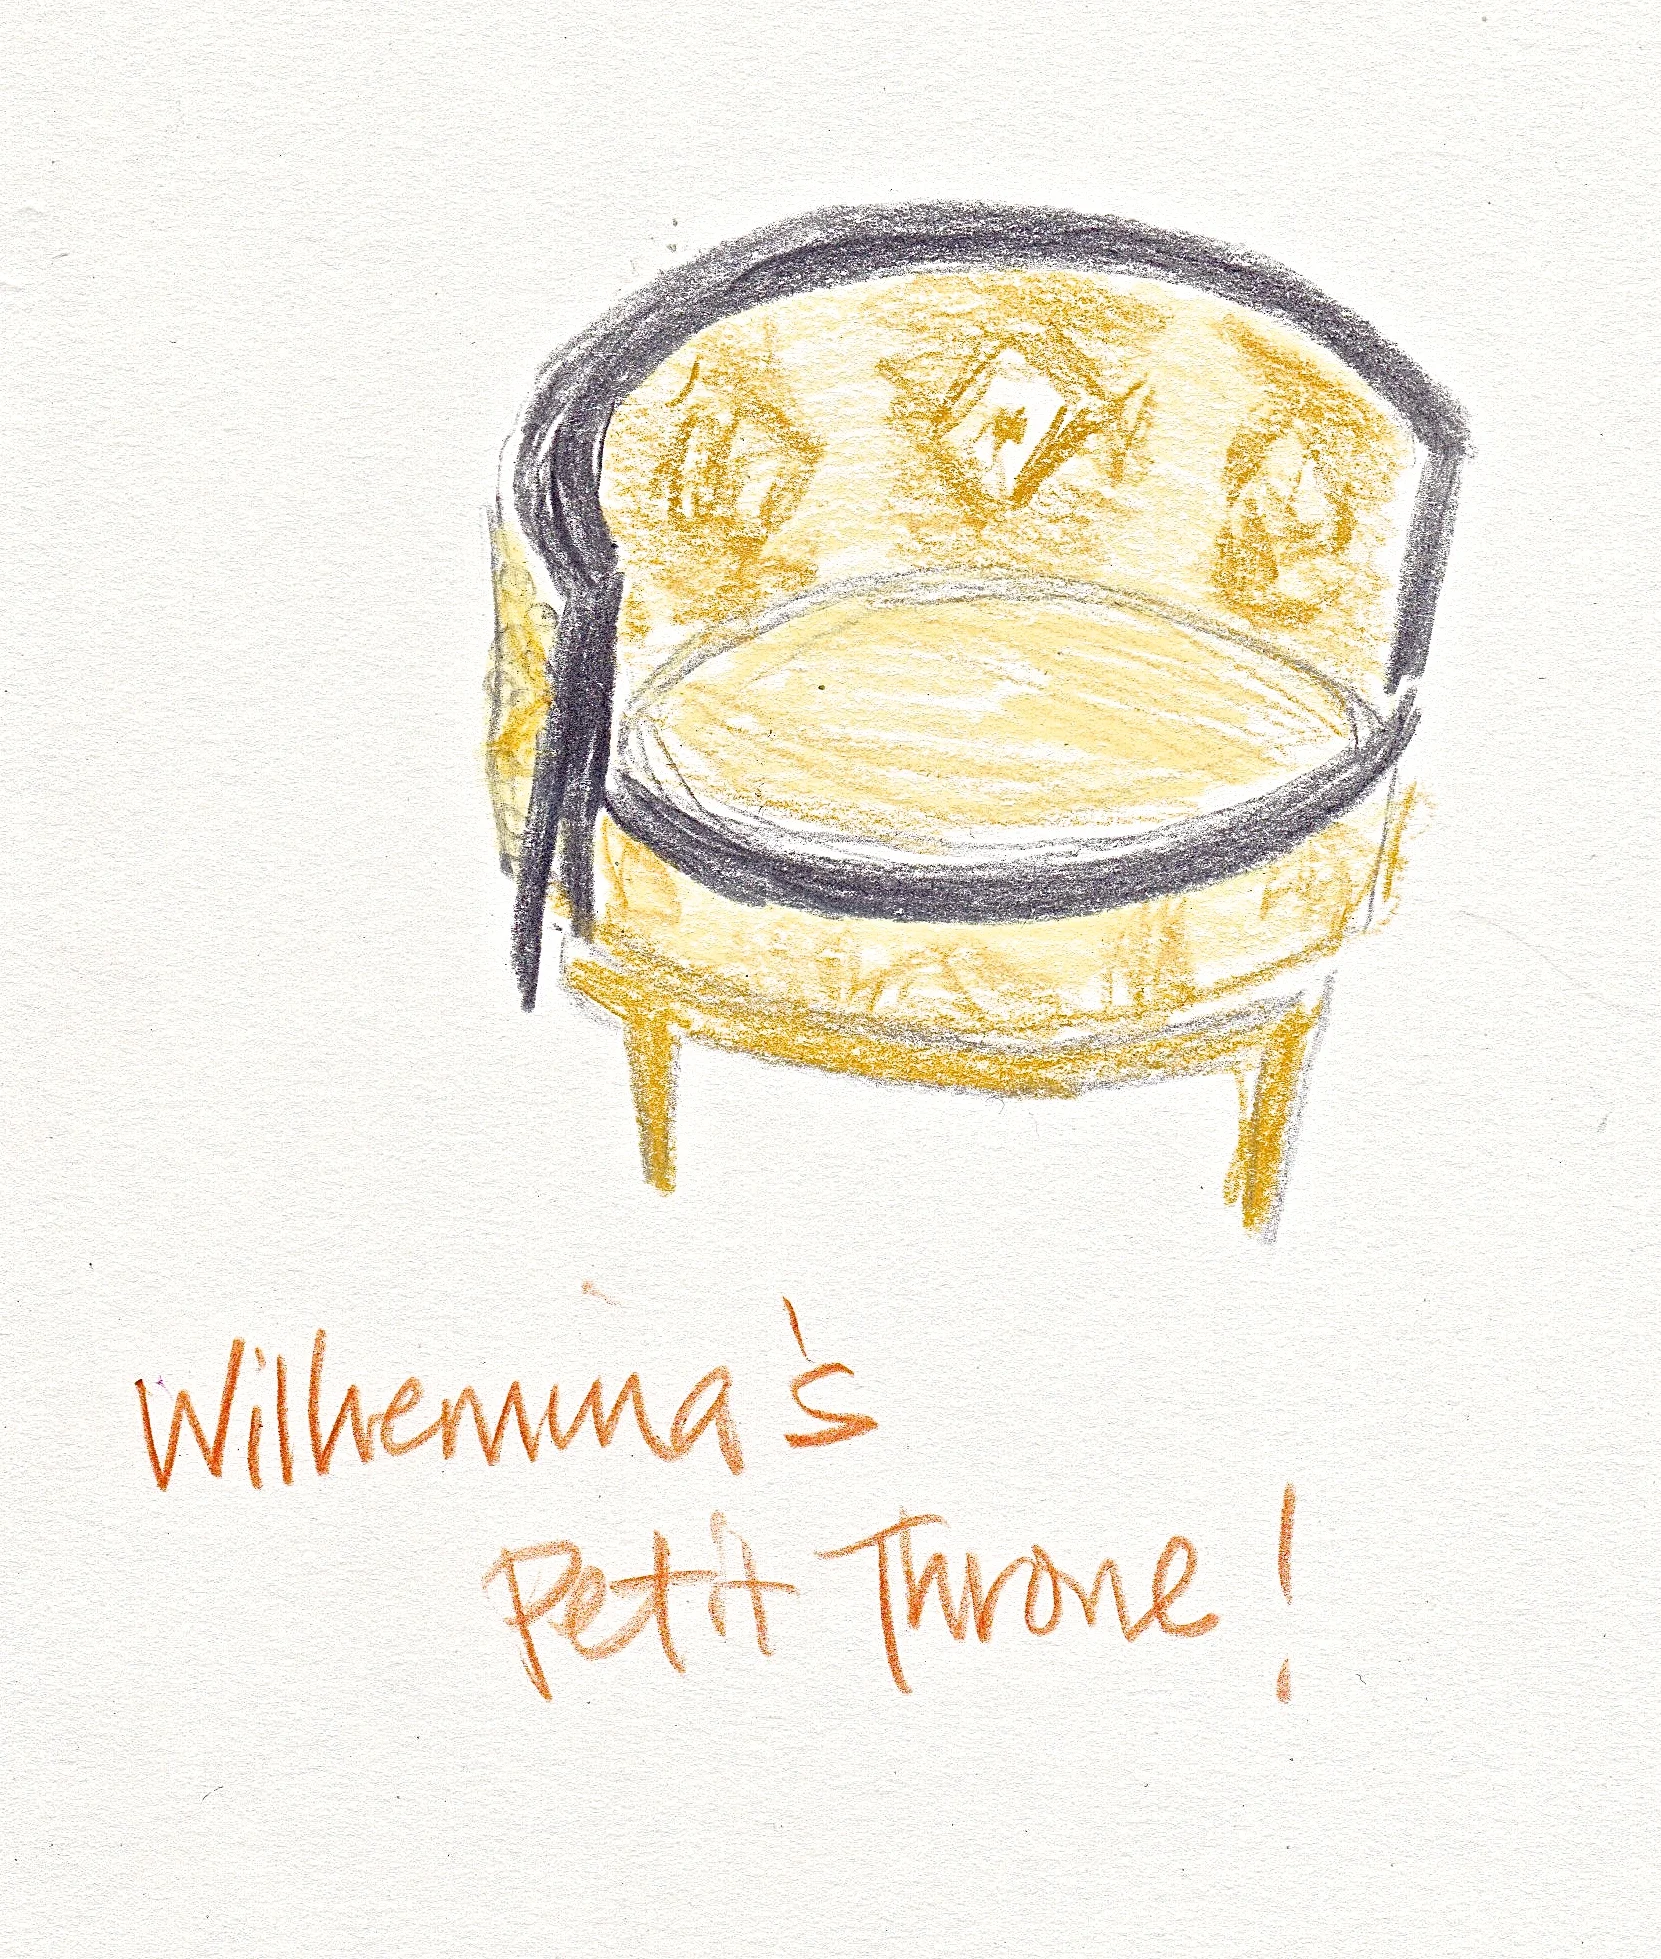 Wilhemina's
Petit Throne!